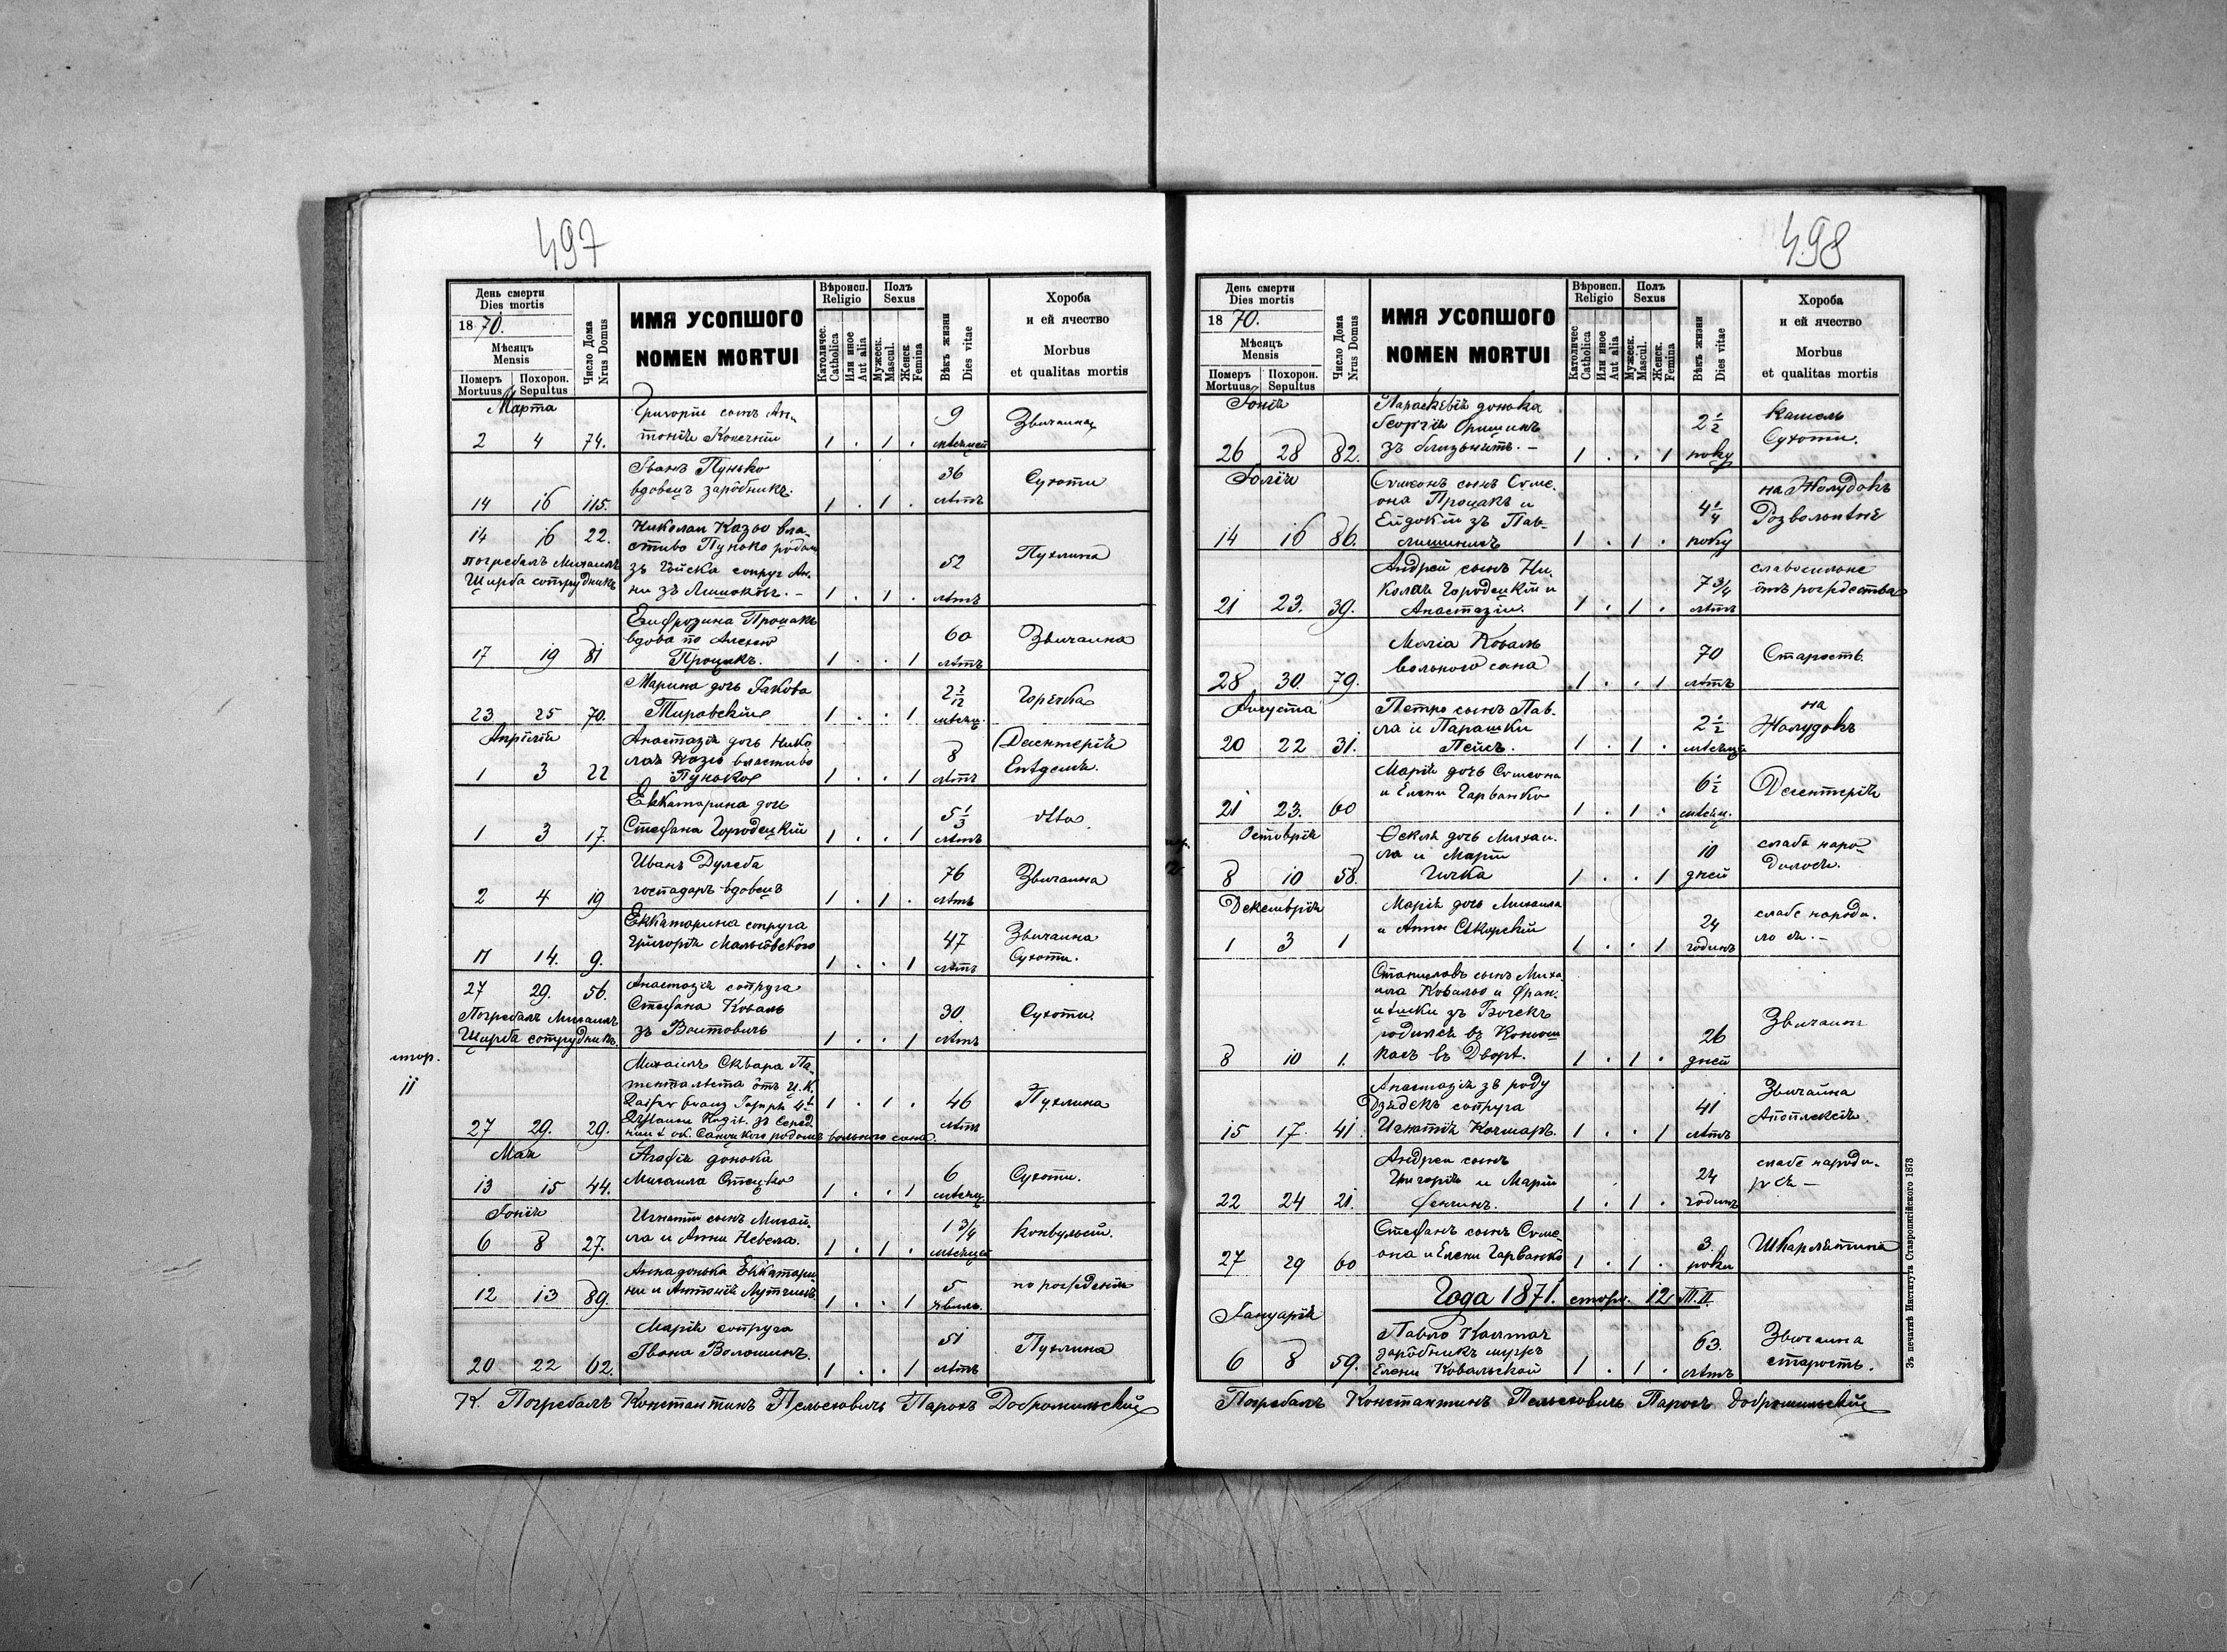 497
День смерти
Dies mortis
18 70.
Мѣсяцъ
Mensis
Померъ
Mortuus
Похорон.
Sepultus
Число Дома
Nrus Domus
ИМЯ УСОПШОГО
NOMEN MORTUI
Вѣроисп.
Religio
Католичес.
Catholica
Или иное
Aut alia
Полъ
Sexus
Мужеск.
Mascul.
Женск.
Femina
Вѣкъ жизни
Dies vitae
Хороба
и ей ячество
Morbus
et qualitas mortis
Марта
Григорій сынъ Ан-
тонія
2 4 74. 1 . 1 . 9 мѣсяцей Звичайна
Іванъ Пунько
вдовецъ зарôбникъ.
14 16 115. 1 . 1 . 36 лѣтъ Сухоти
14 16 22. Николай Казьо вла-
стиво Пунько родом
погребалъ Михаилъ
Щирба сотрудникъ
зъ сопруг Ан-
ни зъ 1 . 1 . 52 лѣтъ Пухлина
Евфрозина Процакъ
вдова по Алексѣю
Процакъ.
17 19 81 1 . . 1 60 лѣтъ Звичайна
Марина дочь Іакова
Тировскій
23 25 70. 1 . . 1 2 мѣсяц. Горячка
Апрѣлія
Анастазія дочь Нико
лая Казьо властиво
Пунько
1 3 22 1 . . 1 8 лѣтъ Десентерія
Епідемія.
Еккатарина дочь
Стефана Городецкій
1 3 17. 1 . . 1 5 1/3 лѣтъ dtto
Иванъ Дулеба
господаръ вдовецъ
2 4 19 1 . 1 . 76 лѣтъ Звичайна
Еккатарина сопруга
Григорія
11 14. 9. 1 . . 1 47 лѣтъ Звичайна
Сухоти.
27 29. 56. Анастазія сопруга
Стефана Коваль
зъ Войтовичь
Погребалъ Михаилъ
Щирба сотрудникъ.
1 . . 1 30. лѣтъ Сухоти
стор.
11
Михаилъ Сквара Па-
тенталиста ôтъ Ц.К.
27 29. 29. 1 . 1 . 46 лѣтъ Пухлина
вольного сана.
Мая
Агафія донька
Михаила Стецько
13 15 44. 1 . . 1 6 мѣсяц. Сухоти.
Іонія
Игнатій сынъ Михаи-
ла и Анни Невела.
6 8 27. 1 . 1 . 1 3/4 мѣсяцей конвульсій.
Анна донька Еккатари
ни и Антонія
12 13 89. 1 . . 1 5 хвиль. по рождению
Марія сопруга
Івана Волошинъ.
20 22 62. 1 . . 1 51 лѣтъ Пухлина
К. Погребалъ Константинъ Пельеховичь Парохъ Добромильскій
498
День смерти
Dies mortis
18 70.
Мѣсяцъ
Mensis
Померъ
Mortuus
Похорон.
Sepultus
Число Дома
Nrus Domus
ИМЯ УСОПШОГО
NOMEN MORTUI
Вѣроисп.
Religio
Католичес
Catholica
Или иное
Aut alia
Полъ
Sexus
Мужеск.
Mascul.
Женск.
Femina
Вѣкъ жизни
Dies vitae
Хороба
и ей ячество
Morbus
et qualitas mortis
Іонія
Параскевія донька
Георгія
зъ близьнятъ. –
26 28 82. 1 . . 1 2 1/2 року Кашель
Сухоти.
Іолія
Сѵмеонъ сынъ Сѵме-
она Процакъ и
Ейдокіи зъ Пав-
лишинихъ
14 16 86. 1 . 1 . 4 1/4 року на Жолудокъ
Андрей сынъ Ни-
колая Городецкій и
Анастазіи.
21 23. 39. 1 . 1 . 7 3/4 лѣтъ
ôтъ рождества
Марія Коваль
вольного сана
28 30. 79. 1 . . 1 70 лѣтъ Старость.
Августа
Петро сынъ Пав-
ла и Парашки
Пейсъ.
20 22 31. 1 . 1 . 2 1/2 мѣсяца на
Жолудокъ
Марія дочь Сѵмеона
и Елени Гарванко
21 23. 60 1 . 1 . 6 1/2 мѣсяц. Десентерія
Октоврія
Ѳекля дочь Михаи-
ла и Маріи
Гичка
8 10 58. 1 . . 1 10 дней слаба наро-
дилася.
Декемврія
Марія дочь Михаила
и Анни Сікорскій
1 3 1 1 . . 1 24 годинъ слабе народи-
ло ся. –
Станиславъ сынъ Миха
ила Ковальо и Фран-
цѣшки зъ
родился въ
въ Дворѣ.
8 10 1. 1 . 1 . 26 дней Звичайн
Анастазія зъ роду
Дзядекъ сопруга
Игнатія Кочмаръ.
15 17 41. 1 . . 1 41 лѣтъ Звичайна
Апоплексія.
Андрей сынъ
Григорія и Маріи
Фенчинъ.
22 24 21. 1 . 1 . 24 годинъ слабе народи-
Стефанъ сынъ Сѵме-
она и Елени Гарванко
27 29 60 1 . 1 . 3. роки Шкарлятина
Года 1871. стор. 12 Т. II.
Іануарія
Павло
зарôбникъ мужъ
Елени Ковальской
6 8 59. 1 . 1 . 63. лѣтъ Звичайна
старость.
Погребалъ Константинъ Пельеховичь Парохъ Добромильскій
Зъ печатнѣ Института Ставропигійского 1873